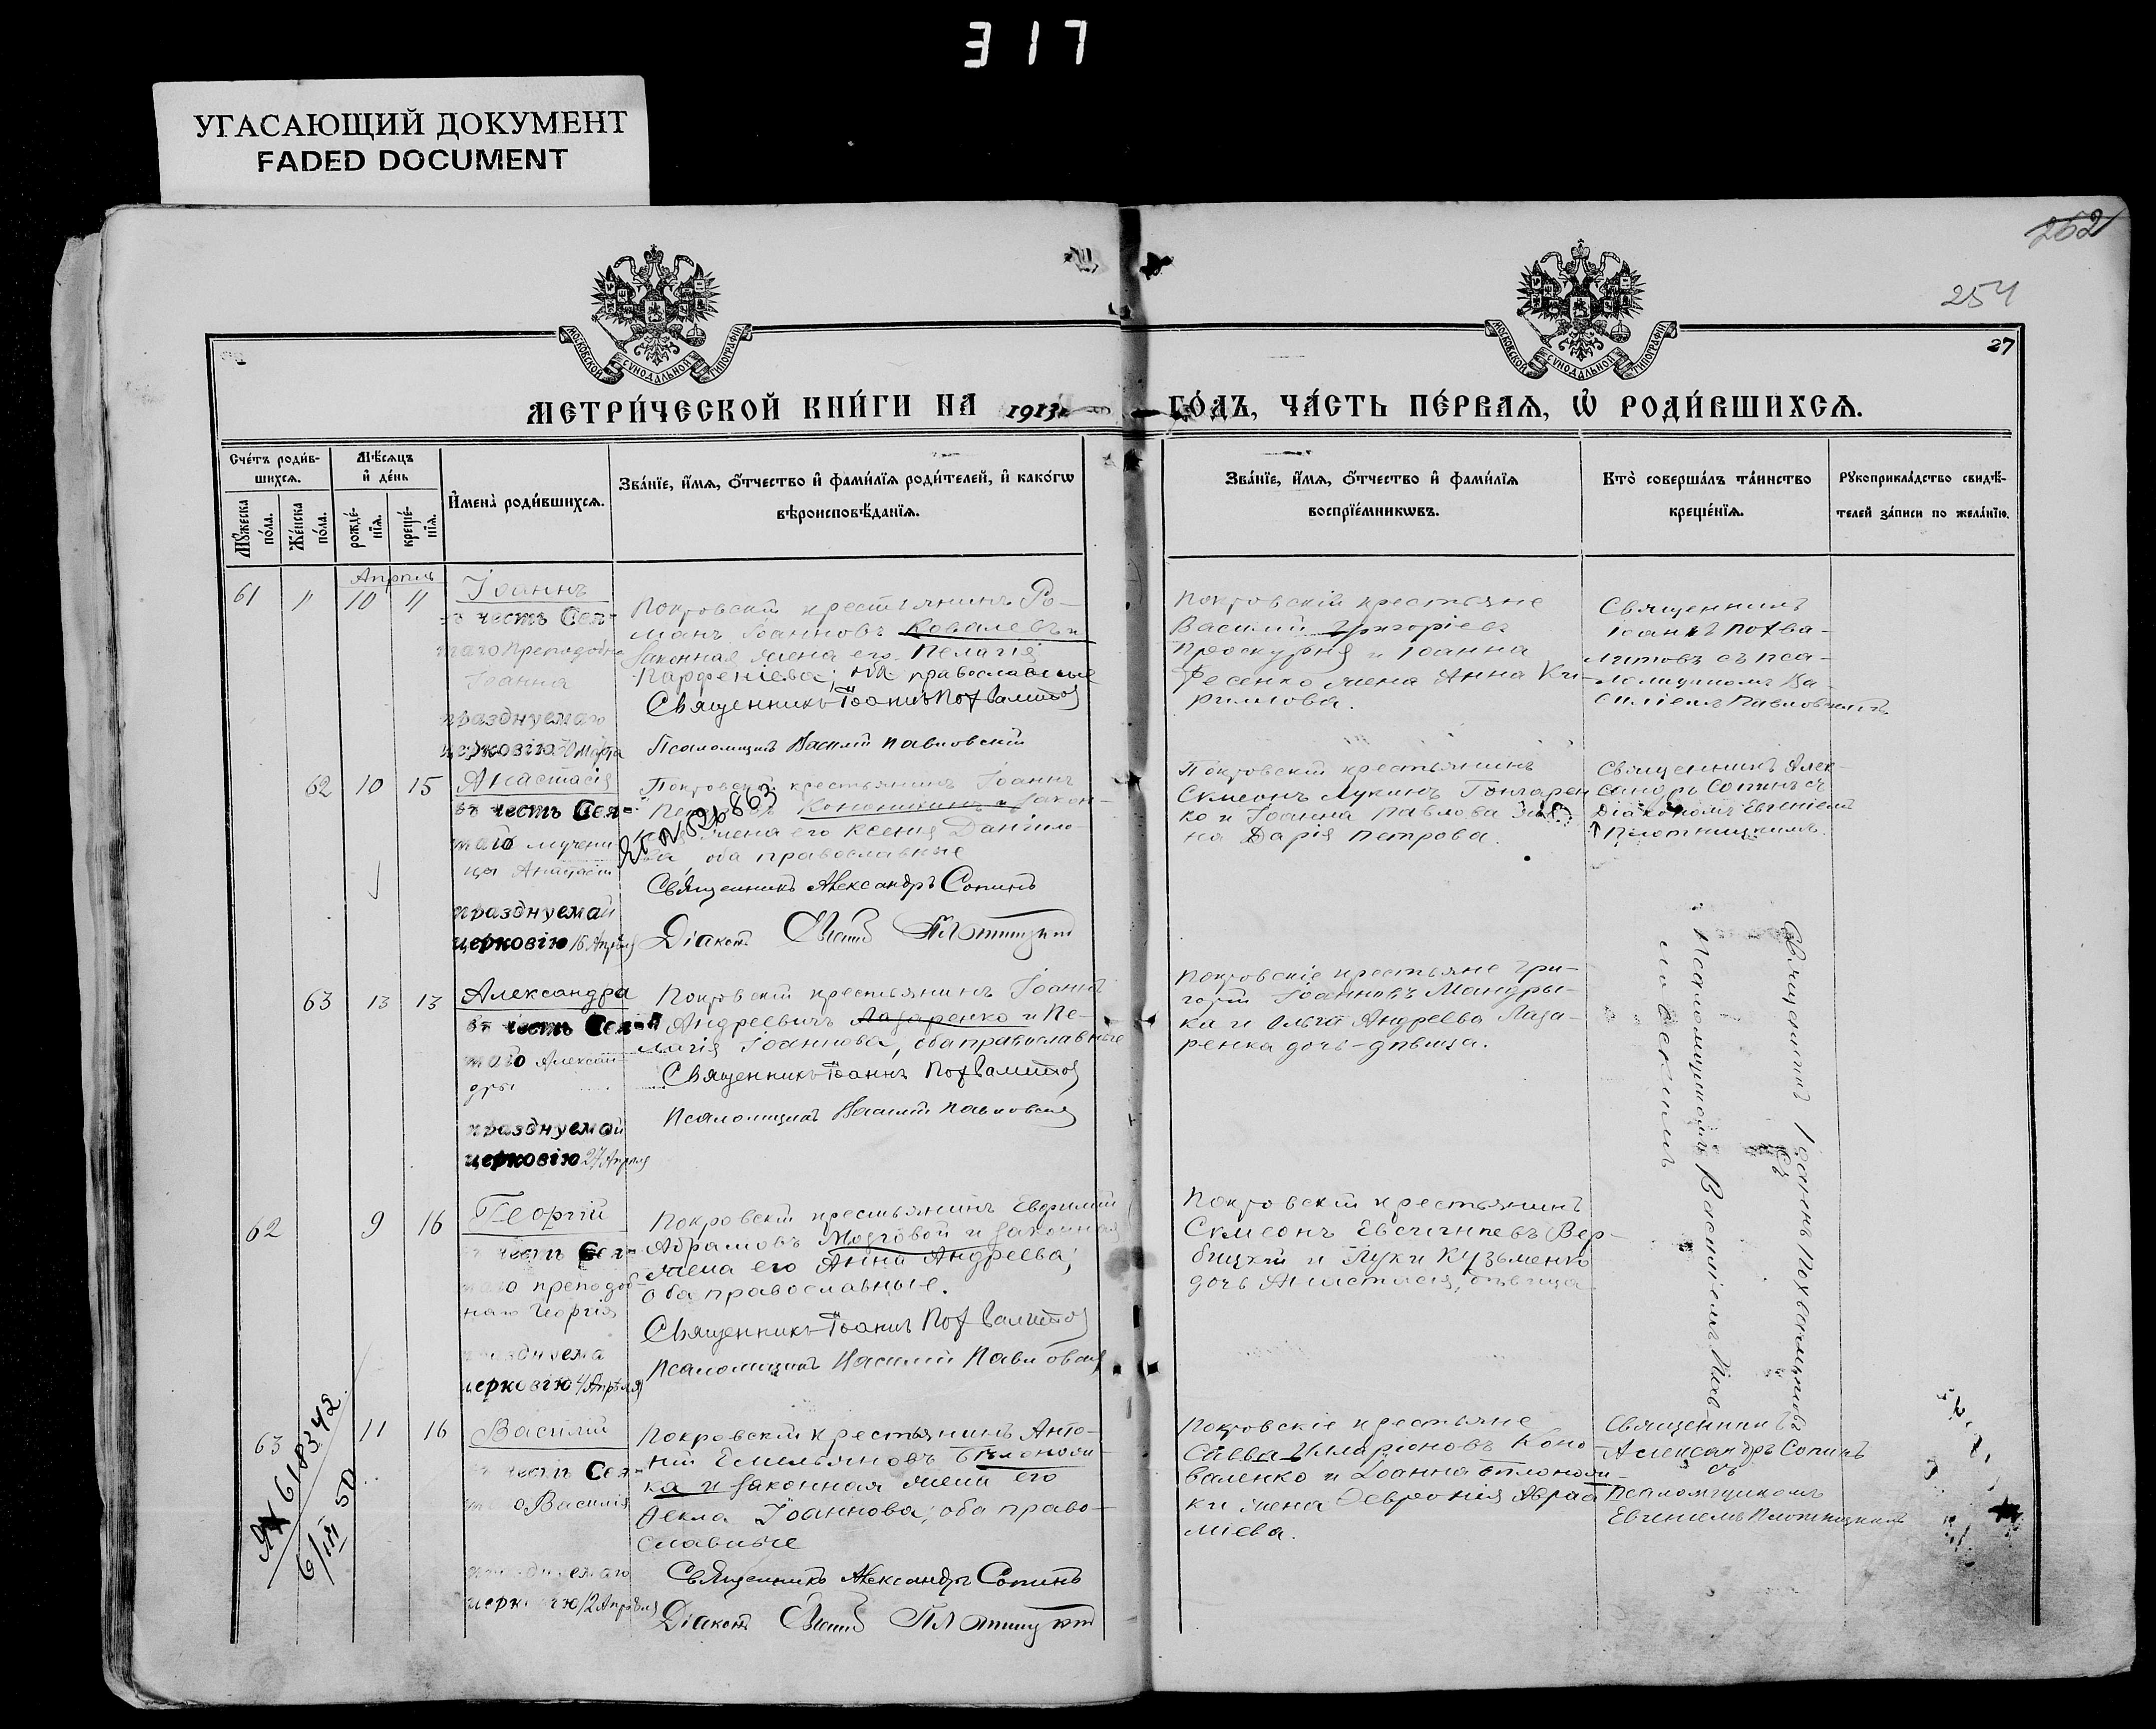 317
УГАСАЮЩИЙ ДОКУМЕНТ
FADED DOCUMENT
262
254
27
МОСКОВСКОЙ СѴНОДАЛЬНОЙ ТИПОГРАФІИ
МОСКОВСКОЙ СѴНОДАЛЬНОЙ ТИПОГРАФІИ
МЕТРИ́ЧЕСКОЙ КНИ́ГИ НА 1913 ГО́ДЪ, ЧА́СТЬ ПЕ́РВАЯ, Ѡ РОДИ́ВШИХСЯ.
Сче́тъ роди́в-
шихся.
Мѣ́сяцъ
и де́нь
Му́жеска
по́ла.
Же́нска
по́ла.
рожде́-
нія.
креще́-
нія.
Имена̀ роди́вшихся.
Зва́ніе, и́мя, о́тчество и фами́лія роди́телей, и како́гѡ
вѣроисповѣ́данія.
Зва́ніе, и́мя, о́тчество и фами́лія
воспріе́мникѡвъ.
Кто̀ соверша́лъ та́инство
креще́нія.
Рукоприкла́дство свидѣ́-
телей за́писи по жела́нію.
Апрѣль
61 10 11
Іоаннъ
въ честь Свя-
таго Преподобна
Іоанна
празднуемаго
церковію 30 Марта
Покровскій крестьянинъ Ро-
манъ Іоанновъ Ковалевъ и
законная жена его Пелагія
Парфеніева; оба православные
Священникъ Іоаннъ Похвалитовъ
Псаломщикъ Василій Павловскій
Покровскій крестьяне
Василий Григоріевъ
Проскурня и Іоанна
Фесенко жена Анна Ки-
рилова.
Священникъ
Іоаннъ Похва-
литовъ съ пса-
ломщикомъ Ва-
силіемъ Павловскимъ
62 10 15
Анастасія
въ честь Свя-
таго мучени
цы Анастасіи
празднуемай
церковію 15 Апрѣля
Покровскій крестьянинъ Іоаннъ
жена его Ксенія Даніило-
ва, оба православные
Священникъ Александръ Сопинъ
Діаконъ Евгеній Плотницкій
Покровскій крестьянинъ
Симеонъ Лукинъ Гончарен
ко и Іоанна Павлова
на Дарія Петрова.
Священникъ Алек-
сандръ Сопинъ съ
Діакономъ Евгеніемъ
Плотницкимъ.
63 13 13
Александра
въ честь Свя-
таго Алексан
дры
празднуемай
церковію 27 Апрѣля
Покровскій крестьянинъ Іоаннъ
Андреевичъ Лазаренко и Пе-
лагія Іоаннова, оба православные
Священникъ Іоаннъ Похвалитовъ
Псаломщикъ Василій Павловскій
Покровскіе крестьяне Гри-
горій Іоанновъ Мандры-
ка и Ольга Андреева Лаза-
ренка дочь-дѣвица.
Священникъ Іоаннъ Похвалитовъ
съ
Псаломщикомъ Василіемъ Пав
ловскимъ
62 9 16
Георгій
въ честь Свя-
таго преподоб-
наго Георгія
празднуема
церковію 4 Апрѣля
Покровскій крестьянинъ Евфимій
Абрамовъ Мозговой и законная
жена его Анна Андреева;
оба православные.
Священникъ Іоаннъ Похвалитовъ
Псаломщикъ Василій Павловскій
Покровскій крестьянинъ
Симеонъ Евсигніевъ Вер-
бицкій и Луки Кузьменко
дочь Анастасія, дѣвица
63 11 16
Василій
въ честь Свя-
таго Василія
празднуемаго
церковію 12 Апрѣля
Покровскій крестьянинъ Анто-
ній Емельяновъ Бѣлоножи-
ка и законная жена его
Фекла Іоаннова; оба право-
славные
Священникъ Александръ Сопинъ
Діаконъ Евгеній Плотницкій
Покровскіе крестьяне
Савва Илларіоновъ Коно-
валенко и Іоанна Бѣлоножи-
ки жена Февронія Авраа
міева.
Священникъ
Александръ Сопинъ
съ
Псаломщикомъ
Евгеніемъ Плотницкимъ
618342
6/III 50